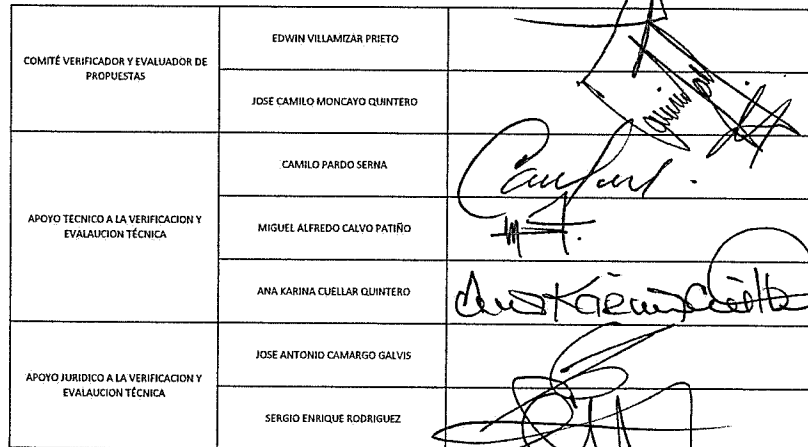 COMITÉ VERIFICADOR Y EVALUADOR DE
PROPUESTAS
EDWIN VILLAMIZAR PRIETO
JOSE CAMILO MONCAYO QUINTERO
APOYO TECNICO A LA VERIFICACION Y
EVALAUCION TÉCNICA
CAMILO PARDO SERNA
MIGUEL ALFREDO CALVO PATIÑO
ANA KARINA CUELLAR QUINTERO
Ana Karina Cuéllar
APOYO JURIDICO A LA VERIFICACION Y
EVALAUCION TÉCNICA
JOSE ANTONIO CAMARGO GALVIS
SERGIO ENRIQUE RODRIGUEZ